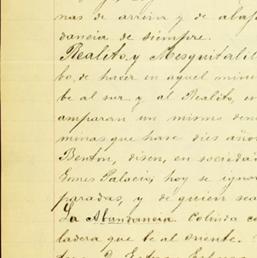 nas de arriva y de abaj
dancia de siempre.
Realito, y Mesquitalit
bo, de hacer en aquel mine
be al sur y al Realito, en
amparan un mismo den
minas que hase dies años
Benton, disen, en sociedad
Gomes Palacio, hoy se igno
paradas, y de quien sea
La Abundancia. Colinda co
ladera que be al oriente.